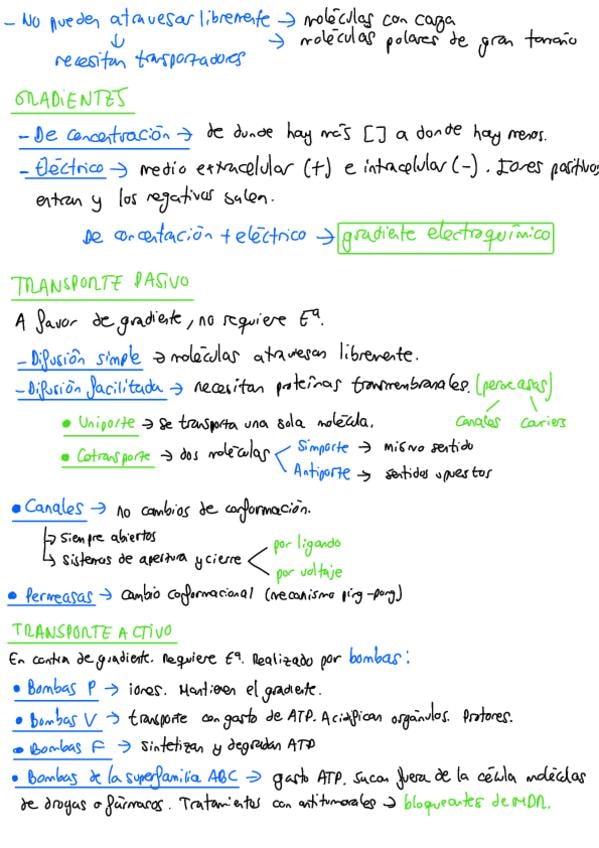 - No pueden atravesar libremente → moléculas con carga
↓ → moléculas polares de gran tamaño
necesitan transportadores
GRADIENTES
- De concentración → de dunde hay más [] a donde hay menos.
- Eléctrico → medio extracelular (+) e intracelular (-). Iones positivos
entran y los negativos salen.
De concentración + eléctrico → gradiente electroquímico
TRANSPORTE PASIVO
A favor de gradiente, no requiere Eª.
- Difusión simple → moléculas atraviesan libremente.
- Difusión facilitada → necesitan proteínas transmembranales. (permeasas)
canales carriers
• Uniporte → se transporta una sola molécula.
• Cotransporte → dos moléculas < Simporte → mismo sentido
Antiporte → sentidos opuestos
• Canales → no cambios de conformación.
↳ Siempre abiertos
↳ Sistemas de apertura y cierre < por ligando
por voltaje
• Permeasas → cambio conformacional (mecanismo ping-pong)
TRANSPORTE ACTIVO
En contra de gradiente. Requiere Eª. Realizado por bombas:
• Bombas P → iones. Mantienen el gradiente.
• Bombas V → transporte con gasto de ATP. Acidifican orgánulos. Protones.
• Bombas F → sintetizan y degradan ATP
• Bombas de la superfamilia ABC → gasto ATP. Sacan fuera de la célula moléculas
de drogas o fármacos. Tratamientos con antitumorales → bloqueantes de MDR.